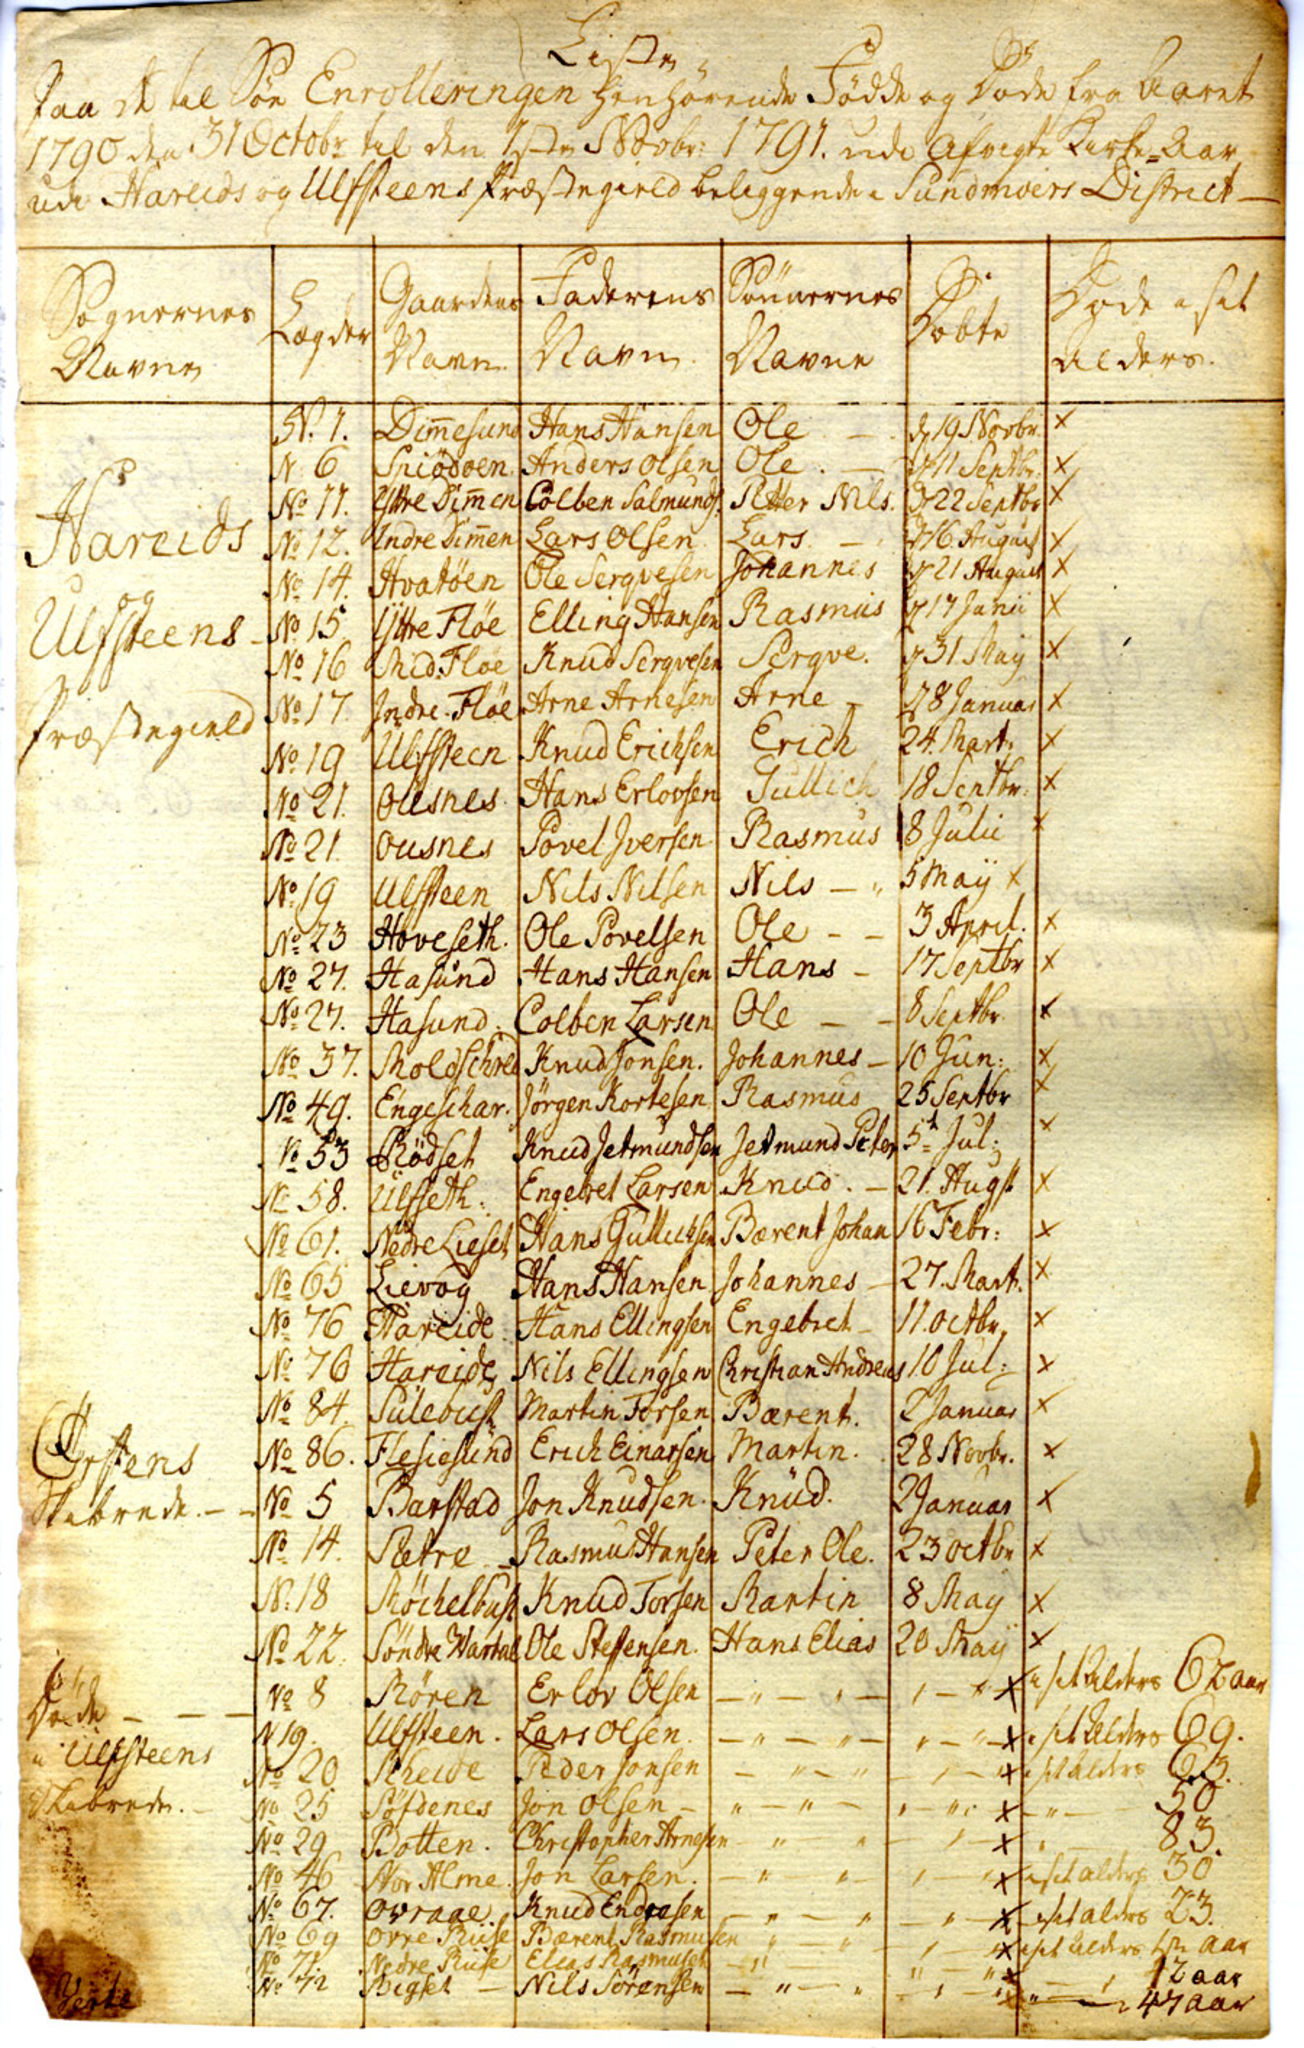 Liste
Paa de til Søe Enrolleringen henhørende Fødde og Døde fra Aaret
1790 den 31 Octobr til den 1ste Novbr: 1791. udi Afvigte Kirke-Aar
udi Hareids og Ulfsteens Præstegield beliggende i Sundmoers District
Sognernes Navne | Lægder | Gaardens Navn | Faderens Navn | Sønnernes Navne | Døbte | Døde i sit alders.
Hareids og Ulfsteens Præstegield
N. 1. Dim̄esund Hans Hansen Ole d 19 Novbr. x
N 6 Sniødoen Anders Olsen Ole d 11 Septbr. x
No 11. Yttre Dim̄en Colben Salmunds. Petter Nils. d 22 Septbr x
No 12. Indre Dim̄en Lars Olsen Lars d 16 August x
No 14. Hvatøen Ole Serqvesen Johannes d 21 August x
No 15 Yttre Fløe Elling Hansen Rasmus d 17 Junii x
No 16 Mid: Fløe Knud Serqvesen Serqve. d 31 May x
No 17. Indre Fløe Arne Arnesen Arne d 8 Januar x
No 19 Ulfsteen Knud Erichsen Erich 24. Mart: x
No 21. Ousnes Hans Erlovsen Gullich 18 Septbr: x
No 21. Ousnes Povel Iversen Rasmus 8 Julii x
No 19 Ulfsteen Nils Nilsen Nils 5 May x
No 23 Hoveseth. Ole Povelsen Ole 3 April. x
No 27. Hasund Hans Hansen Hans 17 Septbr x
No 27. Hasund. Colben Larsen Ole 8 Septbr x
No 37. Moldschred Knud Jonsen. Johannes 10 Jun: x
No 49. Engeschar. Jörgen Kortesen Rasmus 25 Septbr x
No 53 Rødset Knud Jetmundsen Jetmund Peter 5t Jul: x
No 58. Ulfseth: Engebret Larsen Knud. 21. Augst x
No 61. Nedre Lieset Hans Gullichsen Bærent Johan 16 Febr: x
No 65 Lievog Hans Hansen Johannes 27. Mart. x
No 76 Hareide Hans Ellingsen Engebret 11. octbr. x
No 76 Hareide Nils Ellingsen Christian Andreas 10 Jul: x
No 84. Sulebust Martin Torsen Bærent. 2 Januar x
No 86. Flesiesund Erich Einarsen Martin. 28 Novbr. x
Ørstens Skibrede.
No 5 Barstad Jon Knudsen. Knud. 2 Januar x
No 14. Sætre Rasmus Hansen Peter Ole. 23 octbr x
N. 18 Møchelbust Knud Torsen Martin 8 May x
No 22 Søndre Vartdal Ole Steffensen. Hans Elias 20 May x
Døde i Ulfsteens Skibrede.
No 8 Røren Erlov Olsen x i sit Alders 62 aar
N 19. Ulfsteen. Lars Olsen. x i sit Alders 69.
No 20 Scheide Peder Jonsen x i sit alders 63.
No 25 Søfdenes Jon Olsen x 50
No 29 Botten. Christopher Arnesen x 83.
No 46 Nor Alme. Jon Larsen. x i sit alders 30
No 67. Ovraae Knud Endresen x i sit alders 23.
No 69 Øvre Riise Bærent Rasmusen x i sit alders aar
No 71. Nedre Riise Elias Rasmusen x 12 aar
No 72 Bigset Nils Sörensen x 47 aar
Verte